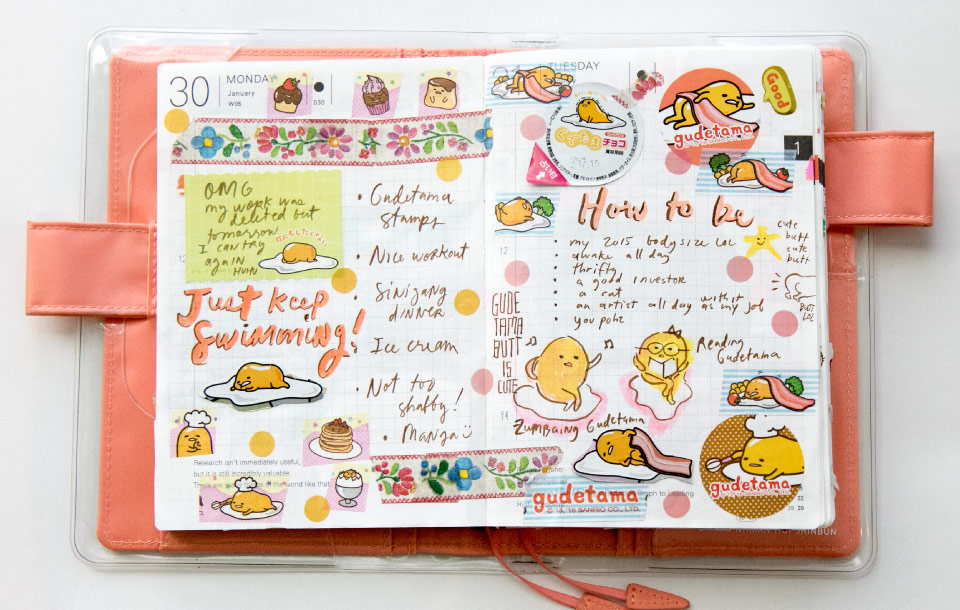 30
MONDAY
January
W05
030
OMG
my work was
deleted but
tomorrow
I can try
again HUHU
Just keep
Swimming!
• Gudetama
stamps
• Nice workout
• Sinigang
dinner
• Ice cream
• Not too
shabby!
• Manga
12
Research isn't immediately useful,
but it is still incredibly valuable.
the world like that
TUESDAY
ぐでたま
チョコ
gudetama
Good
1
How to be
• my 2015 body size LOL
• awake all day
• thrifty
• a good investor
• a cat
• an artist all day with it as my job
• you pohz
cute
butt
cute
butt
BUTT
LOL
12
GUDE
TAMA
BUTT
IS
CUTE
Reading
Gudetama
14
Zumbaing Gudetama
gudetama
© '13, '16 SANRIO CO., LTD.
gudetama
to Leading
SHINBUN